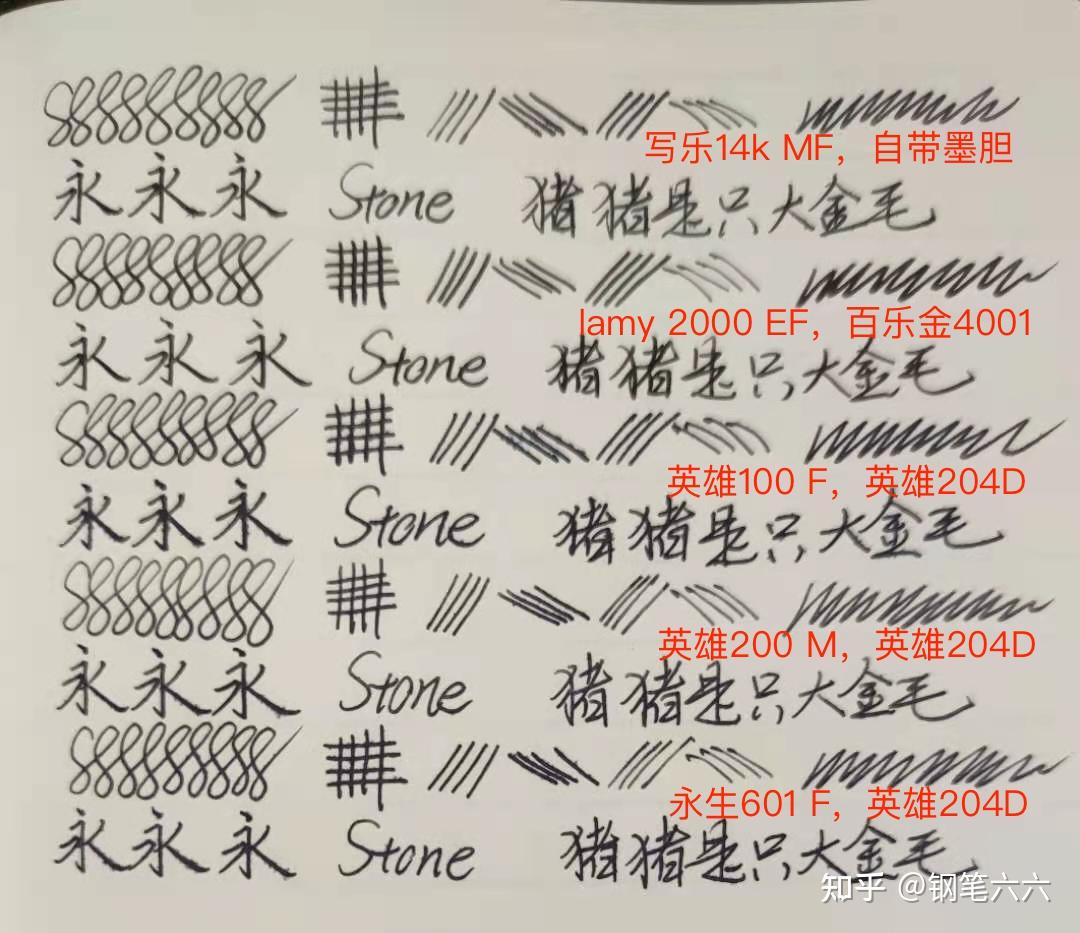 写乐14k MF，自带墨胆
永 永 永 Stone 猪猪是只大金毛
lamy 2000 EF，百乐金4001
永 永 永 Stone 猪猪是只大金毛
英雄100 F，英雄204D
永 永 永 Stone 猪猪是只大金毛
英雄200 M，英雄204D
永 永 永 Stone 猪猪是只大金毛
永生601 F，英雄204D
永 永 永 Stone 猪猪是只大金毛
知乎 @钢笔六六